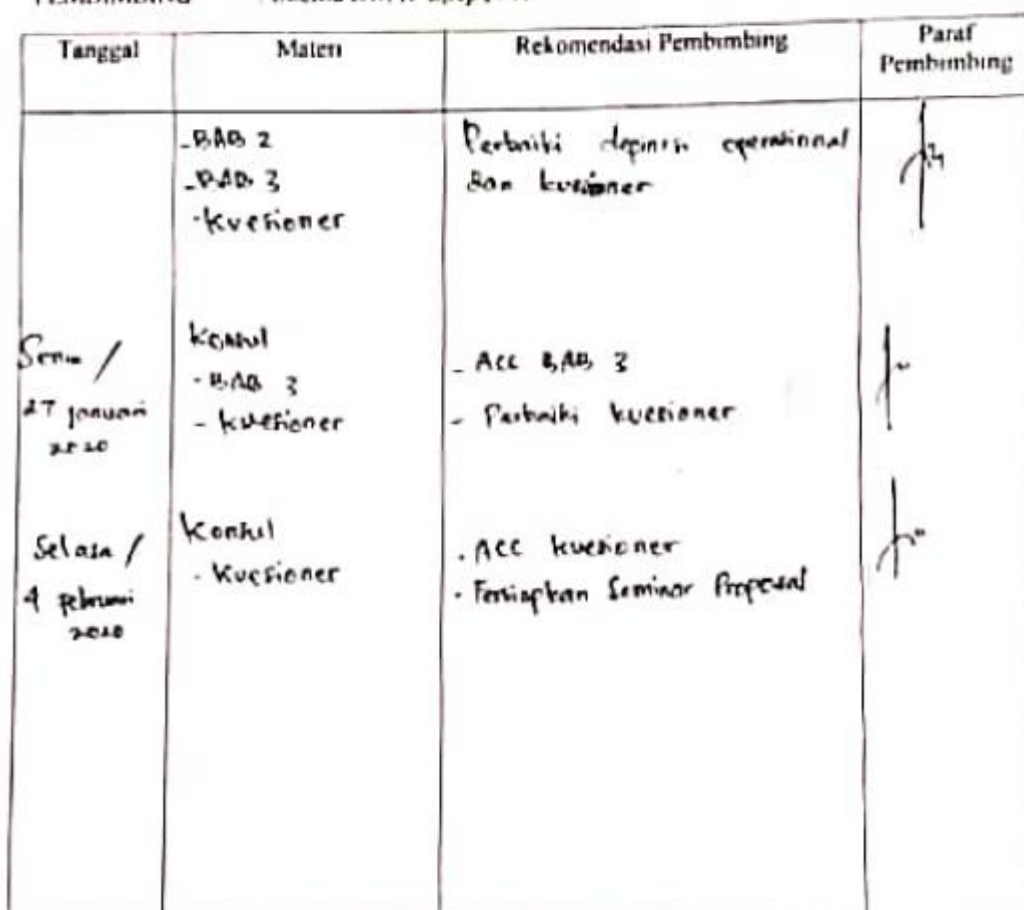 Tanggal
Materi
Rekomendasi Pembimbing
Paraf
Pembimbing
-BAB 2
-BAB 3
-Kuesioner
Perbaiki depinisi operasional
dan kuesioner
Senin /
27 januari
2020
Konsul
- BAB 3
- kuesioner
- Acc BAB 3
- Perbaiki kuesioner
Selasa /
4 februari
2020
Konsul
- Kuesioner
. Acc kuesioner
. Persiapkan Seminar Proposal